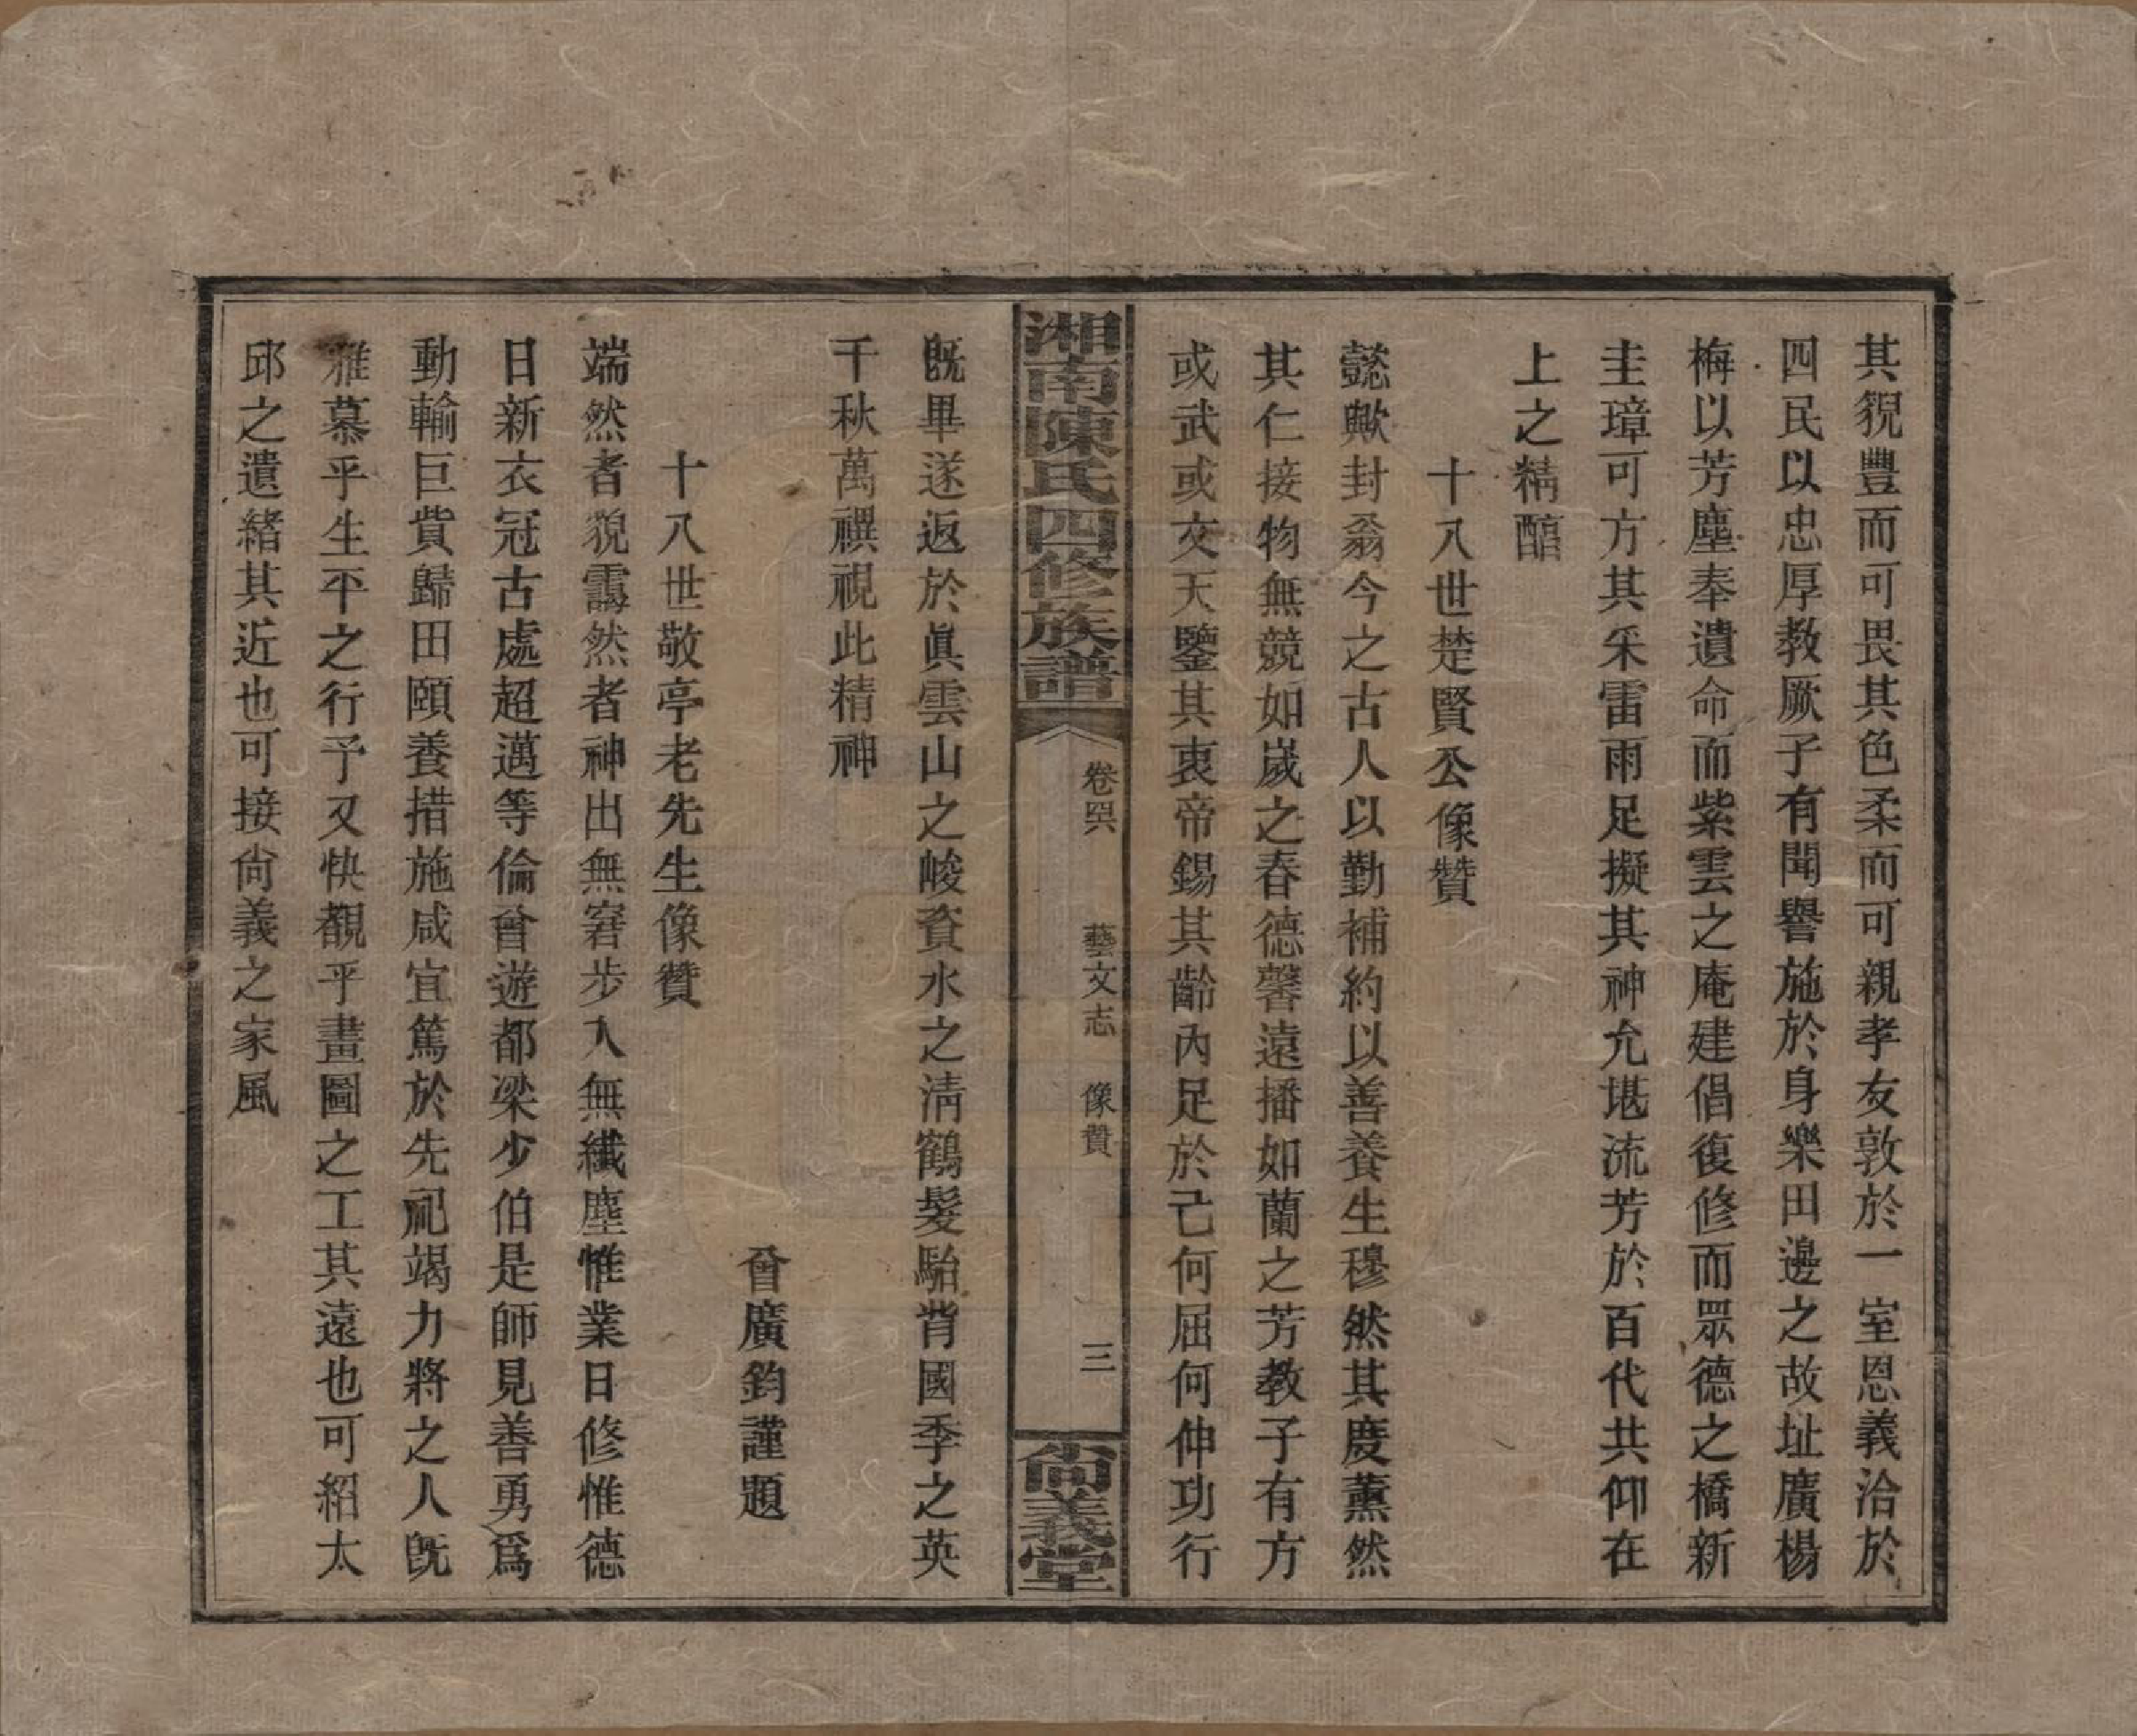 其貌豐而可畏其色柔而可親孝友敦於一室恩義洽於
四民以忠厚教厥子有聞譽施於身樂田邊之故址廣楊
梅以芳塵奉遺命而紫雲之庵建倡復修而眾德之橋新
圭璋可方其采雷雨足擬其神允堪流芳於百代共仰在
上之精醕
十八世楚賢公像贊
懿歟封翁今之古人以勤補約以善養生穆然其度薰然
其仁接物無競如嵗之春德馨遠播如蘭之芳教子有方
或武或文天鑒其衷帝錫其齡內足於己何屈何伸功行
湘南陳氏四修族譜
卷四
藝文志
像贊
三
尚義堂
旣畢遂返於眞雲山之峻資水之淸鶴髮鮐背國季之英
千秋萬禩視此精神
曾廣鈞謹題
十八世敬亭老先生像贊
端然者貌靄然者神出無窘步入無纖塵惟業日修惟德
日新衣冠古處超邁等倫曾遊都梁少伯是師見善勇爲
動輸巨貲歸田頤養措施咸宜篤於先祀竭力將之人旣
雅慕乎生平之行予又快覩乎畫圖之工其遠也可紹太
邱之遺緒其近也可接尙義之家風